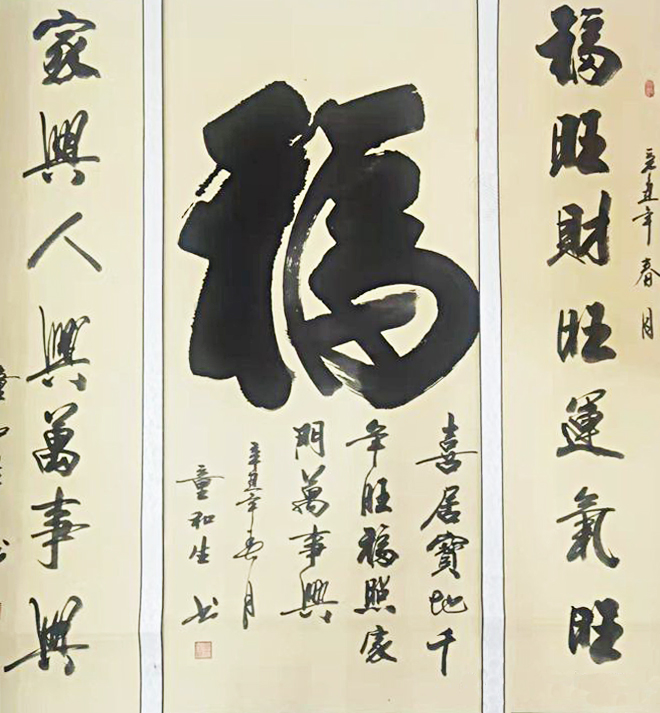 辛丑年春月
福旺財旺運氣旺
福
喜居寶地千
年旺福照家
門萬事興
辛丑年春月
童和生书
家興人興萬事興